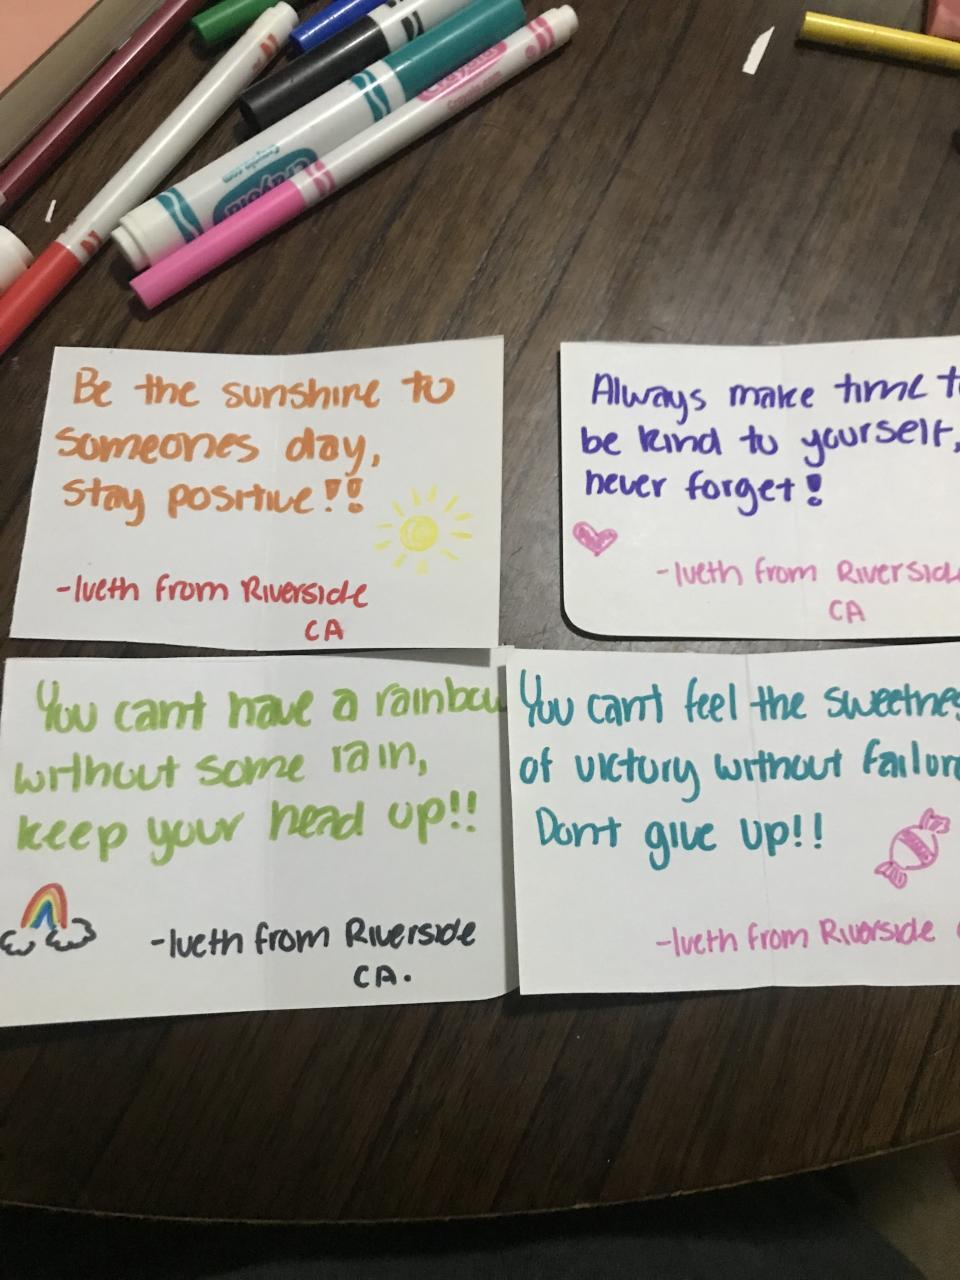 Crayola
Crayola.com
Crayola
Be the sunshine to
someones day,
stay positive!!
-Iveth from Riverside
CA
Always make time to
be kind to yourself,
never forget!
-Iveth from Riverside
CA
You cant have a rainbow
without some rain,
keep your head up!!
-Iveth from Riverside
CA.
You cant feel the sweetness
of victory without failure
Dont give up!!
-Iveth from Riverside